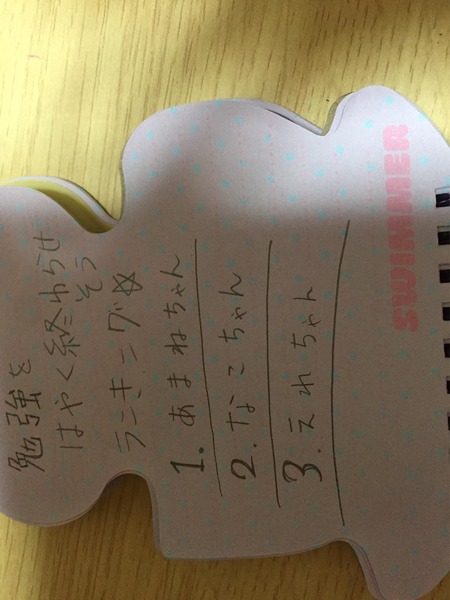 勉強を
はやく終わらせ
そう
ランキング☆
1. あまねちゃん
2. なこちゃん
3. えれちゃん
SWIMMER